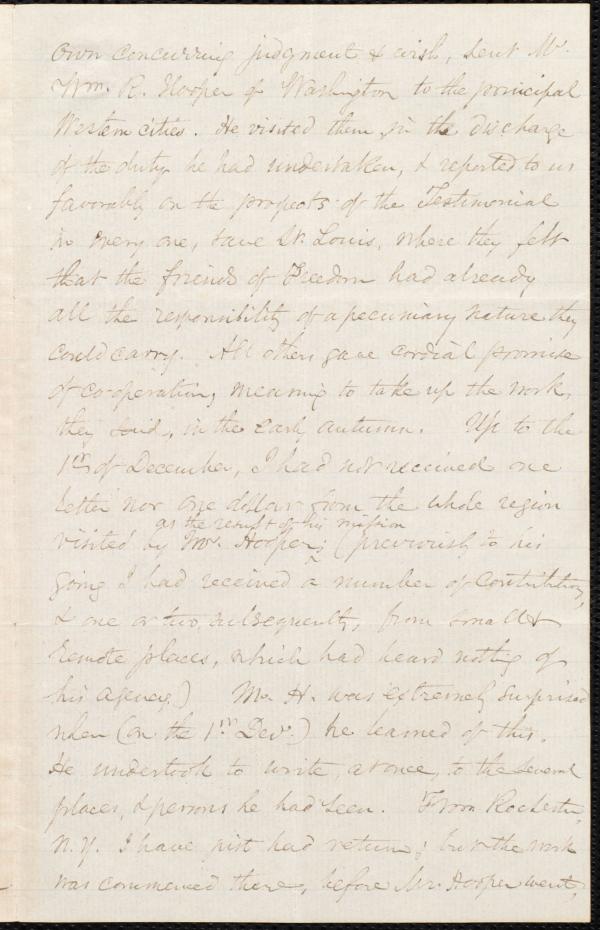 own concurring judgment & wish, sent Mr.
Wm. R. Hooper of Washington to the principal
Western cities. He visited them, in the discharge
of the duty he had undertaken, & reported to us
favorably on the propects of the Testimonial
in every one, save St. Louis, where they felt
that the friends of Freedom had already
all the responsibility of a pecuniary nature they
could carry. All others gave cordial promise
of co-operation, meaning to take up the work,
they said, in the early autumn. Up to the
1st of December, I had not received one
letter nor one dollar from the whole region
as the result of his mission
visited by Mr. Hooper; (previously to his
going I had received a number of Contributions,
& one or two, subsequently, from small &
remote places, which had heard nothing of
his agency.) Mr. H. was extremely surprised
when (on the 1st Decr.) he learned of this.
He undertook to write, at once, to the several
places, & persons he had seen. From Rochester,
N.Y. I have just had return; but the work
was commenced there, before Mr. Hooper went,